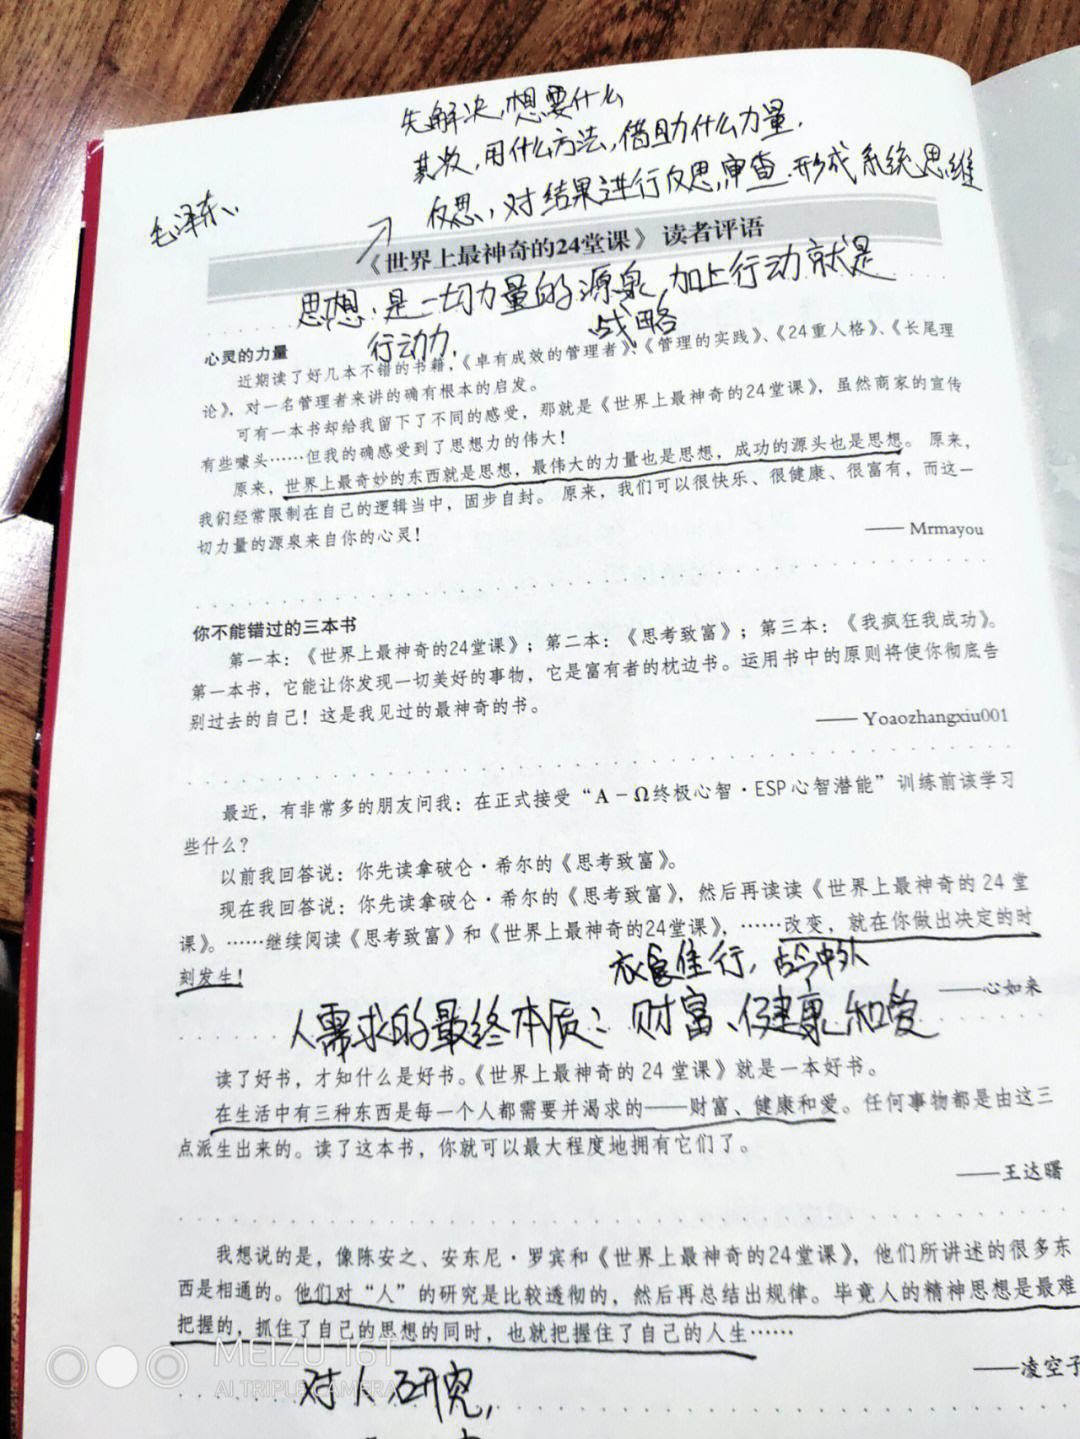 先解决,想要什么
其次,用什么方法,借助什么力量.
反思,对结果进行反思,审查.形成系统思维
毛泽东、
《世界上最神奇的24堂课》 读者评语
思想:是一切力量的源泉,加上行动就是
战略
行动力.
心灵的力量
近期读了好几本不错的书籍,《卓有成效的管理者》、《管理的实践》、《24重人格》、《长尾理
论》,对一名管理者来讲的确有根本的启发。
可有一本书却给我留下了不同的感受,那就是《世界上最神奇的24堂课》,虽然商家的宣传
有些噱头……但我的确感受到了思想力的伟大!
原来,世界上最奇妙的东西就是思想,最伟大的力量也是思想,成功的源头也是思想。原来,
我们经常限制在自己的逻辑当中,固步自封。原来,我们可以很快乐、很健康、很富有,而这一
切力量的源泉来自你的心灵!
—— Mrmayou
你不能错过的三本书
第一本:《世界上最神奇的24堂课》;第二本:《思考致富》;第三本:《我疯狂我成功》。
第一本书,它能让你发现一切美好的事物,它是富有者的枕边书。运用书中的原则将使你彻底告
别过去的自己!这是我见过的最神奇的书。
—— Yoaozhangxiu001
最近,有非常多的朋友问我:在正式接受“A－Ω终极心智·ESP心智潜能”训练前该学习
些什么?
以前我回答说:你先读拿破仑·希尔的《思考致富》。
现在我回答说:你先读拿破仑·希尔的《思考致富》,然后再读读《世界上最神奇的 24 堂
课》。……继续阅读《思考致富》和《世界上最神奇的24堂课》,……改变,就在你做出决定的时
刻发生!
衣食住行,古今中外
——心如来
人需求的最终本质:财富、健康和爱
读了好书,才知什么是好书。《世界上最神奇的 24 堂课》就是一本好书。
在生活中有三种东西是每一个人都需要并渴求的——财富、健康和爱。任何事物都是由这三
点派生出来的。读了这本书,你就可以最大程度地拥有它们了。
——王达曙
我想说的是,像陈安之、安东尼·罗宾和《世界上最神奇的24堂课》,他们所讲述的很多东
西是相通的。他们对“人”的研究是比较透彻的,然后再总结出规律。毕竟人的精神思想是最难
把握的,抓住了自己的思想的同时,也就把握住了自己的人生……
——凌空子
MEIZU 16T
AI TRIPLE CAMERA
对人研究,